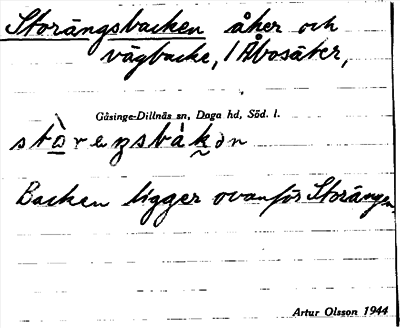 Storängsbacken åker och
vägbacke, 1 Åbosäter,
Gåsinge-Dillnäs sn, Daga hd, Söd. l.
stòreŋsbàkən
Backen ligger ovanför Storängen.
Artur Olsson 1944